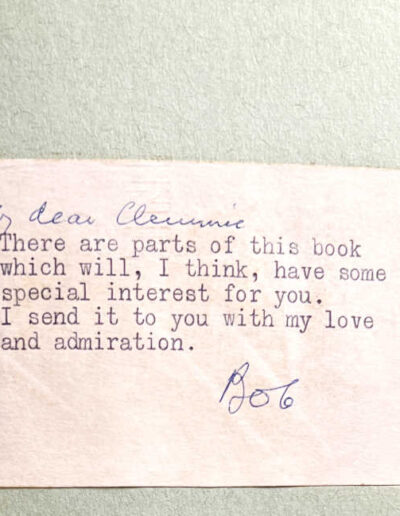 y dear Clemmie
There are parts of this book
which will, I think, have some
special interest for you.
I send it to you with my love
and admiration.
Bob